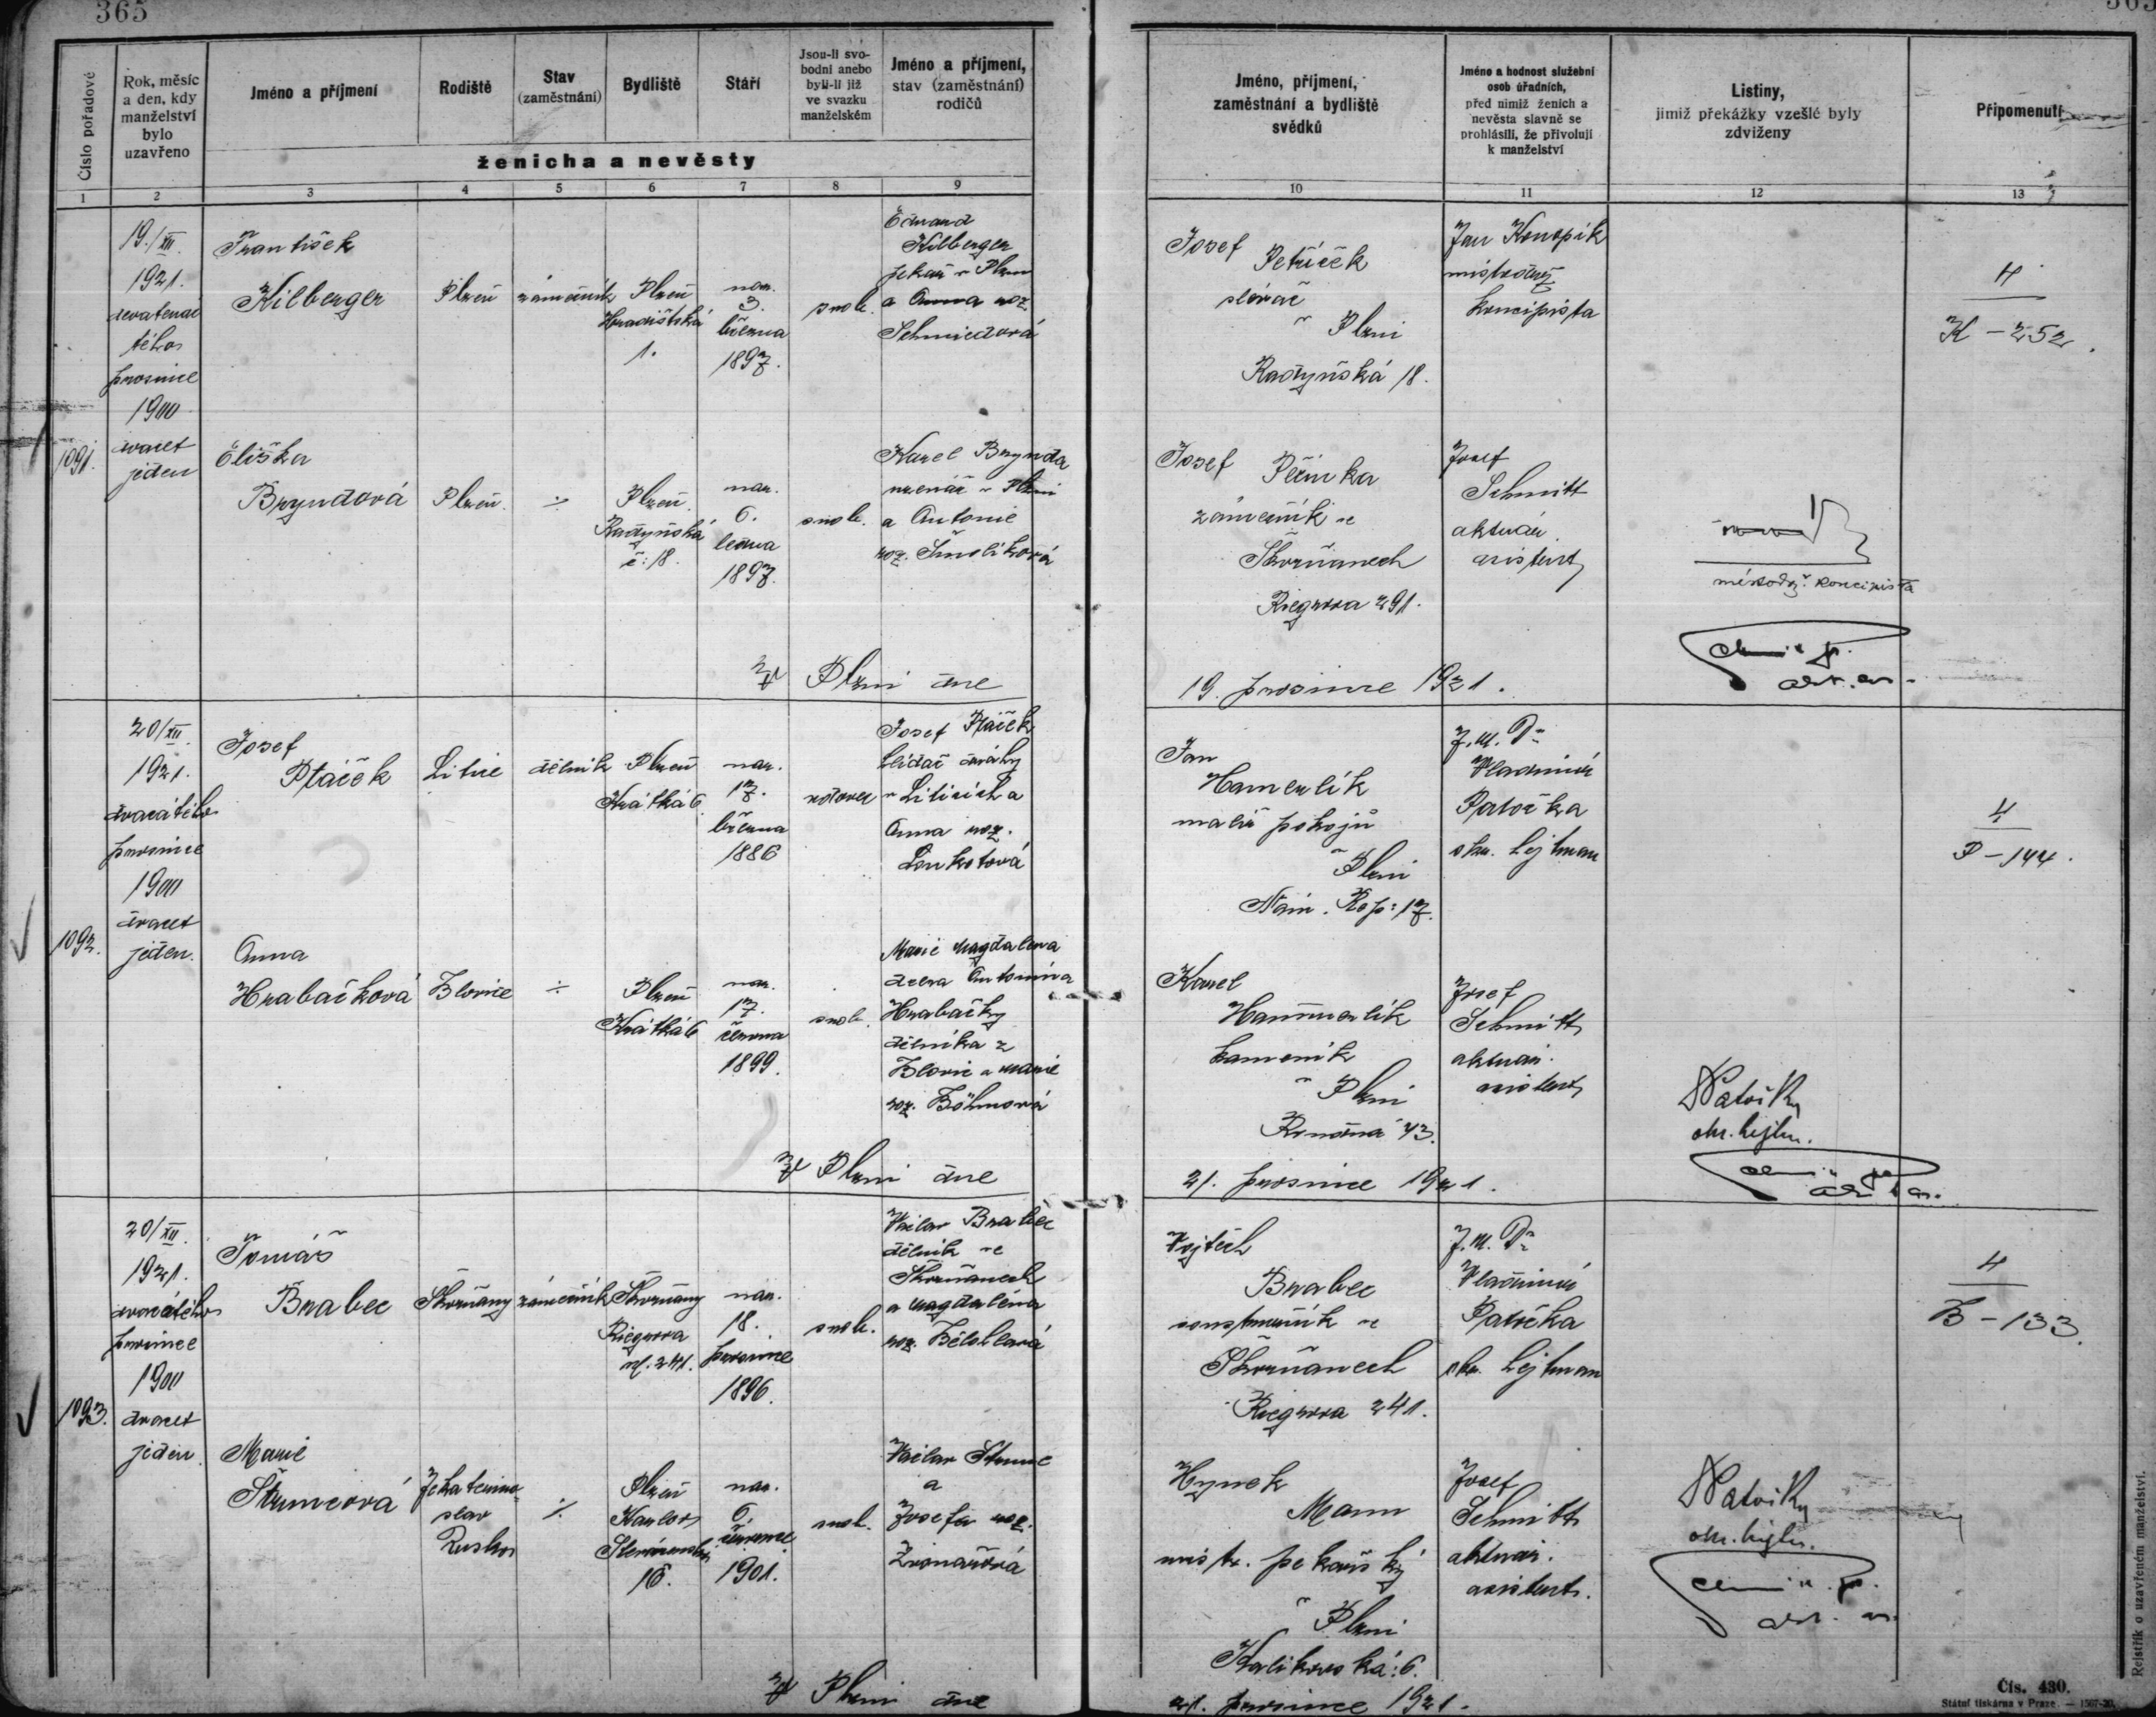 365
365
Číslo pořadové
Rok, měsíc
a den, kdy
manželství
bylo
uzavřeno
Jméno a příjmení
Rodiště
Stav
(zaměstnání)
Bydliště
Stáří
Jsou-li svo-
bodni anebo
byli-li již
ve svazku
manželském
Jméno a příjmení,
stav (zaměstnání)
rodičů
ženicha a nevěsty
Jméno, příjmení,
zaměstnání a bydliště
svědků
Jméno a hodnost služební
osob úřadních,
před nimiž ženich a
nevěsta slavně se
prohlásili, že přivolují
k manželství
Listiny,
jimiž překážky vzešlé byly
zdviženy
Připomenutí
1 2 3 4 5 6 7 8 9 10 11 12 13
1091.
19./XII.
1921.
devatenác
tého
prosince
1900
dvacet
jeden
František
Kilberger
Plzeň
zámečník
Plzeň
Hradištská
1.
nar.
3.
března
1897.
svob.
Eduard
Kilberger
pekař v Plzni
a Anna roz.
Schmiedová
Eliška
Bryndová
Plzeň.
÷
Plzeň
Radyňská
č: 18.
nar.
6.
ledna
1897.
svob.
Karel Brynda
uzenář v Plzni
a Antonie
roz. Šmolíková
Josef
Petříček
slévač
v Plzni
Radyňská 18.
Jan Konopík
místodrž.
koncipista
4
K - 252.
Josef Peřinka
zámečník ve
Škvrňanech
Riegrova 291.
Josef
Schmitt
aktuár.
asistent
místodrž. koncipista
akt. as.
V Plzni dne
19. prosince 1921.
1092.
20/XII.
1921.
dvacátého
prosince
1900
dvacet
jeden.
Josef
Ptáček
Litice
dělník
Plzeň
Krátká 6
nar.
17.
března
1886
vdovec
Josef Ptáček
hlídač dráhy
v Liticích a
Anna roz.
Anna
Hrabačková
Blovice
÷
Plzeň
Krátká 6
nar.
17.
června
1899.
svob.
Marie Magdalena
dcera Antonína
Hrabačky
dělníka z
Blovic a Marie
roz. Böhmová
Jan
Hamerlík
malíř pokojů
v Plzni
Nám. Rep: 17.
J.U.Dr
Vladimír
Patočka
okr. hejtman
4
P - 144.
Karel
Hammerlík
kameník
v Plzni
43.
Josef
Schmitt
aktuár.
asistent
Patočka
okr. hejtm.
V Plzni dne
21. prosince 1921.
1093.
20/XII.
1921.
dvacátého
prosince
1900
dvacet
jeden.
Tomáš
Brabec
Škvrňany
zámečník
Škvrňany
Riegrova
241.
nar.
18.
prosince
1896.
svob.
Václav Brabec
dělník ve
Škvrňanech
a Magdaléna
roz. Bělohlavá
Marie
Štrumcová
Jekaterino-
slav
Rusko
÷
Plzeň
Karlov
16.
nar.
6.
července
1901.
svob.
Václav Štrunc
a
Josefa roz.
Zvonařová
Vojtěch
Brabec
soustružník ve
Škvrňanech
Riegrova 241.
J.U.Dr
Vladimír
Patočka
okr. hejtman
4
B - 133.
Hynek
Mann
mistr. pekařský
v Plzni
Kalikovská: 6.
Josef
Schmitt
aktuár.
asistent.
Patočka
okr. hejtm.
V Plzni dne
21. prosince 1921.
Rejstřík o uzavřeném manželství.
Čís. 430.
Státní tiskárna v Praze. — 1567-20.